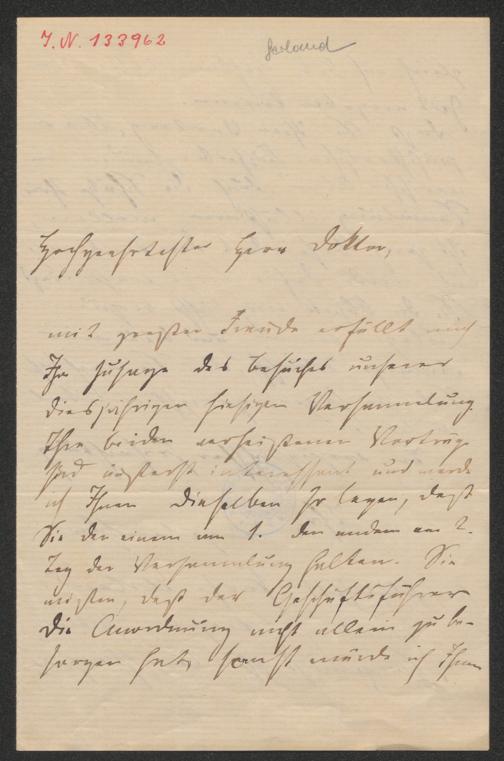 J. N. 133962
Gerland
Hochgeehrtester Herr Doktor,
mit grosser Freude erfüllt mich
Ihr Zusage des Besuches unserer
diesjährigen hiesigen Versammlung.
Ihre beiden verheissenen Vorträge
sind äusserst interessant und werde
ich Ihnen dieselben so legen, dass
Sie den einen am 1. den andern am 2.
Tag der Versammlung halten. Sie
wissen, dass der Geschäftsführer
die Anordnung nicht allein zu be-
sorgen hat, sonst würde ich Ihnen